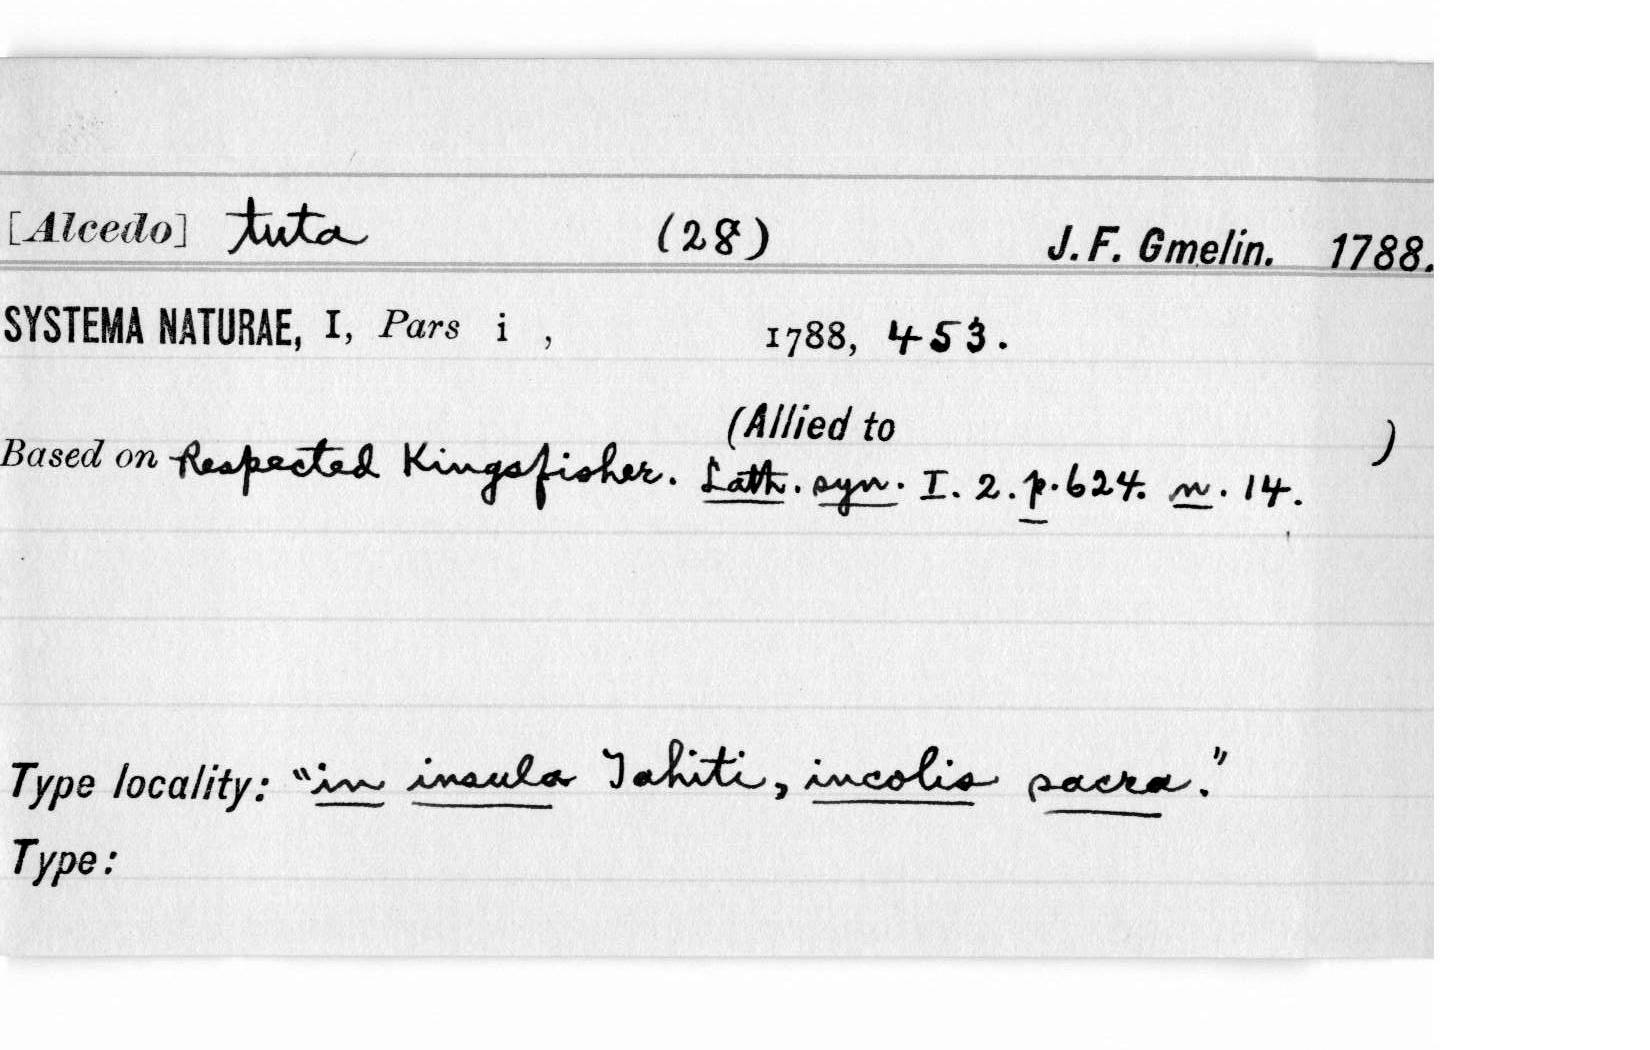 [Alcedo] tuta (28) J. F. Gmelin. 1788.
SYSTEMA NATURAE, I, Pars i , 1788, 453.
(Allied to )
Based on Respected Kingsfisher. Lath. syn. I. 2. p. 624. n. 14.
Type locality: "in insula Tahiti, incolis sacra."
Type: